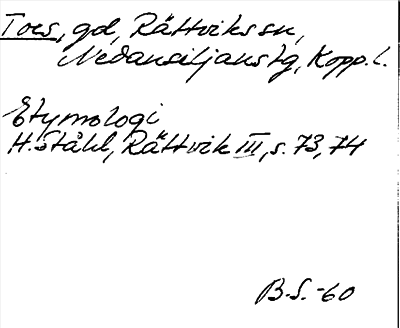 Toes, gd, Rättviks sn,
Nedansiljans tg, Kopp. l.
Etymologi
H. Ståhl, Rättvik III, s. 73, 74
B. S. -60